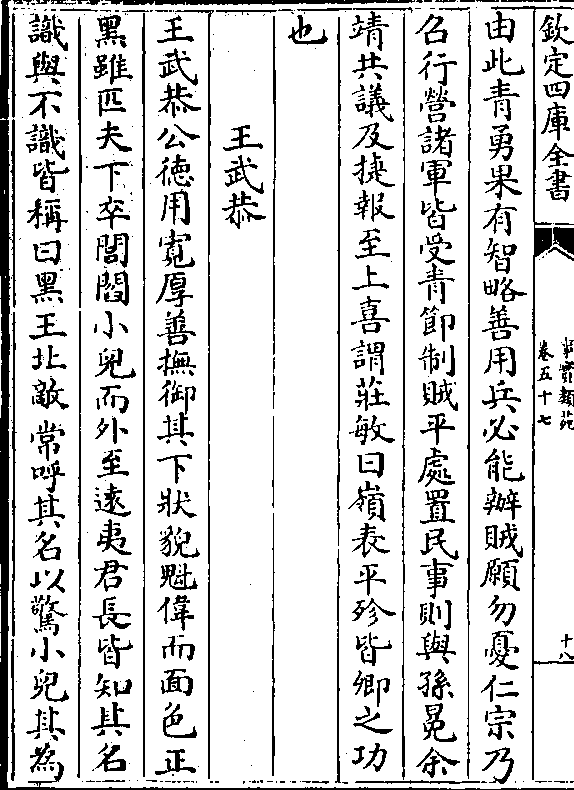 欽定四庫全書
事實類苑
卷五十七
十八
由此青勇果有智略善用兵必能辦賊願勿憂仁宗乃
名行營諸軍皆受青節制賊平處置民事則與孫冕余
靖共議及捷報至上喜謂莊敏曰嶺表平殄皆卿之功
也
王武恭
王武恭公德用寛厚善撫御其下狀貌魁偉而面色正
黑雖匹夫下卒閭閻小兒而外至逺夷君長皆知其名
識與不識皆稱曰黑王北敵常呼其名以驚小兒其為